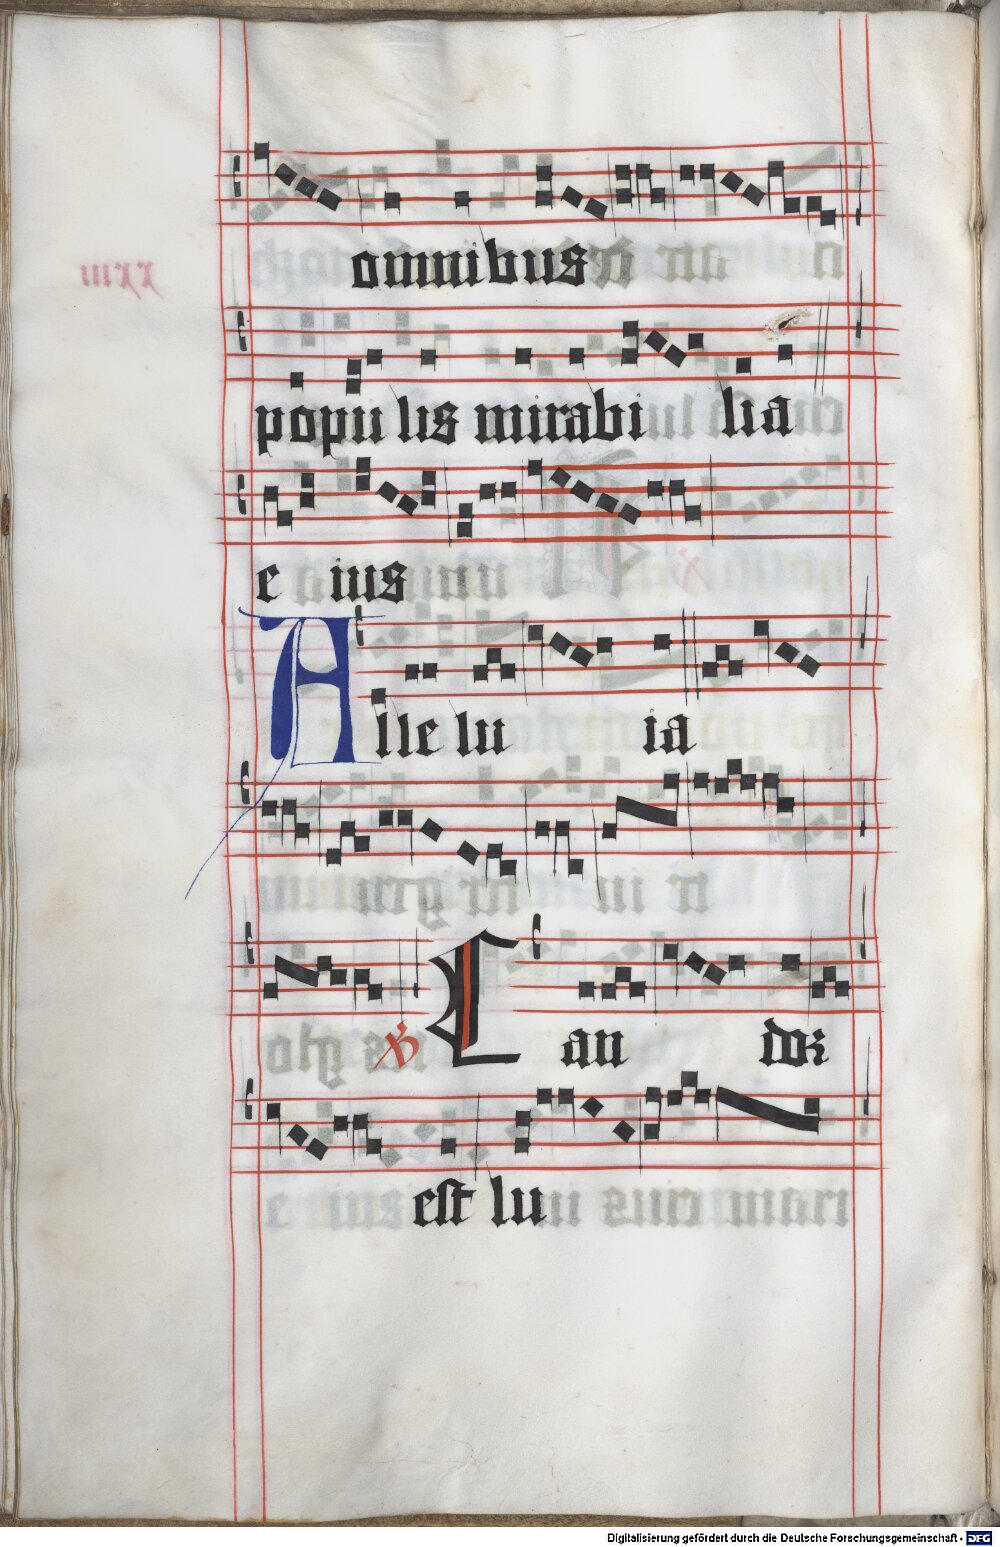 omnibus
popu lis mirabi lia
e ius
Alle lu ia
℣ C an dor
est lu
Digitalisierung gefördert durch die Deutsche Forschungsgemeinschaft - DFG